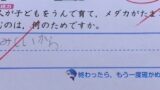 人が子どもをうんで育て，メダカがたま
むのは，何のためですか。
みしいから
終わったら、もう一度確かめ